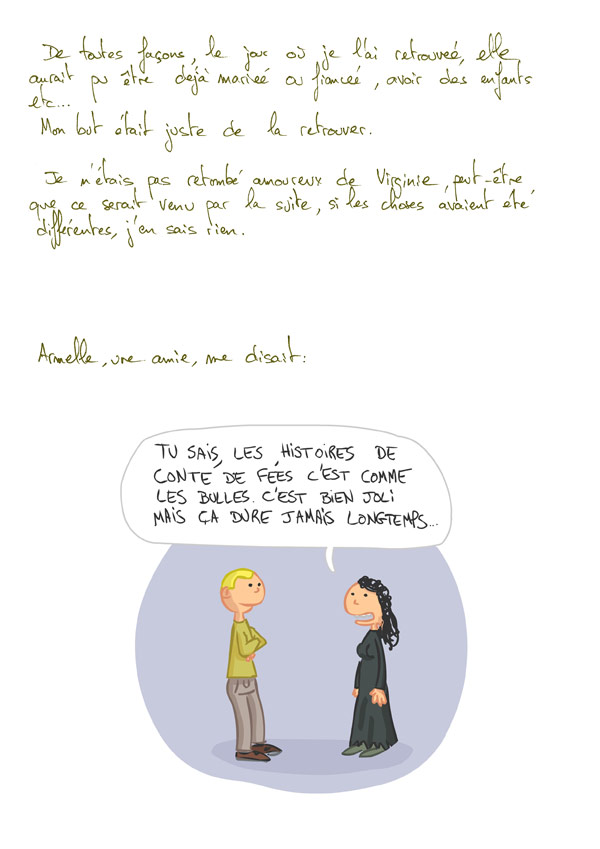 De toutes façons, le jour où je l'ai retrouveé, elle
aurait pu être déjà marieé ou fianceé, avoir des enfants
etc...
Mon but était juste de la retrouver.
Je n'étais pas retombé amoureux de Virginie, peut-être
que ce serait venu par la suite, si les choses avaient été
différentes, j'en sais rien.
Armelle, une amie, me disait:
TU SAIS, LES HISTOIRES DE
CONTE DE FÉES C'EST COMME
LES BULLES. C'EST BIEN JOLI
MAIS ÇA DURE JAMAIS LONGTEMPS...